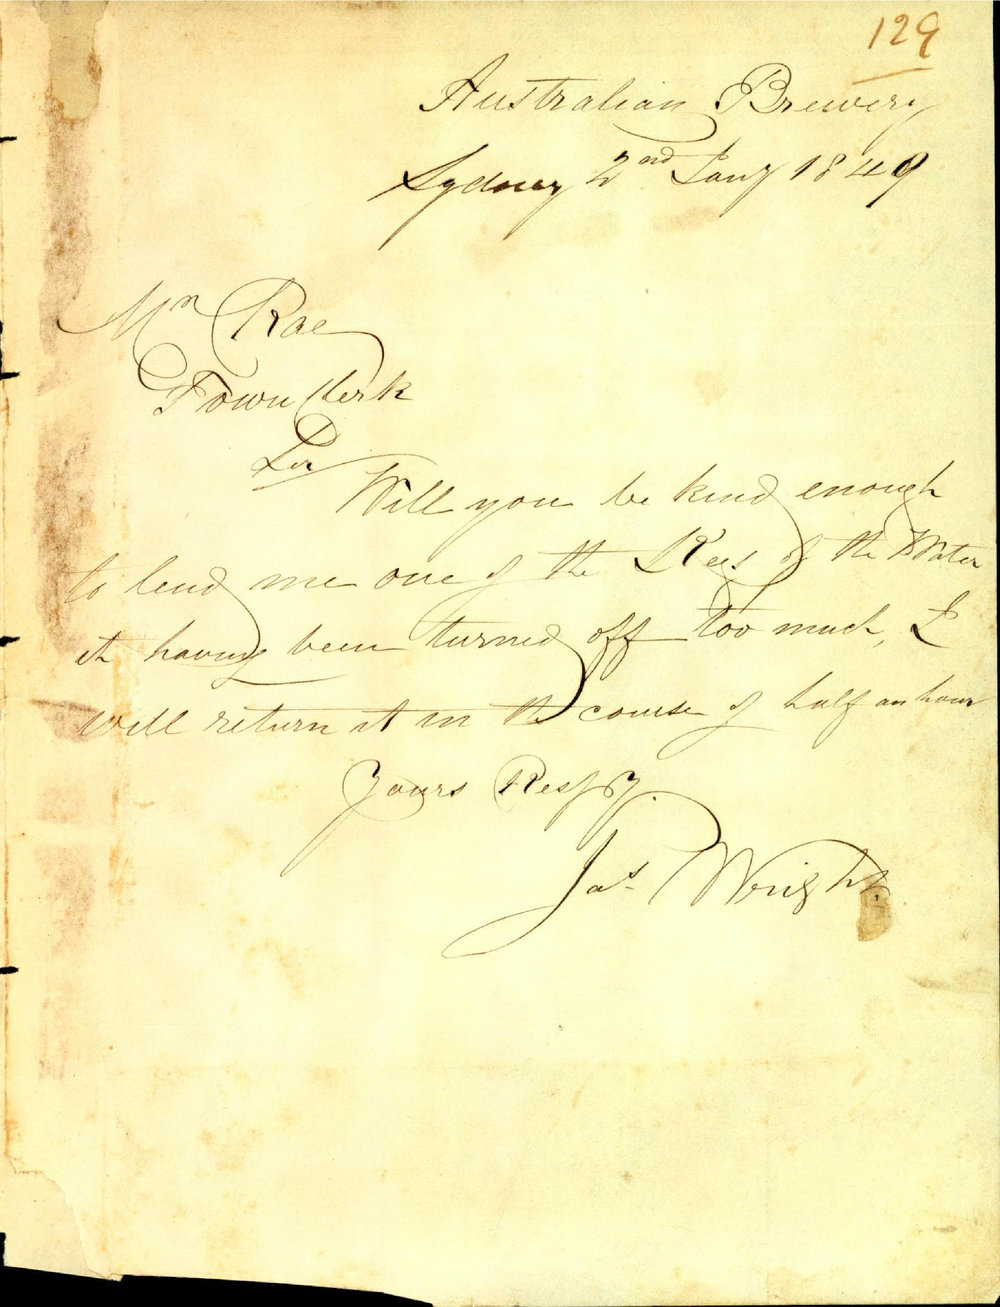 129
Australian Brewery
Sydney 2nd Jany 1849
Mr Rae
Town Clerk
Sir
Will you be kind enough
to lend me one of the Keys of the Water
it having been turned off too much, I
will return it in the course of half an hour
Yours Respy.
Jas. Wright.